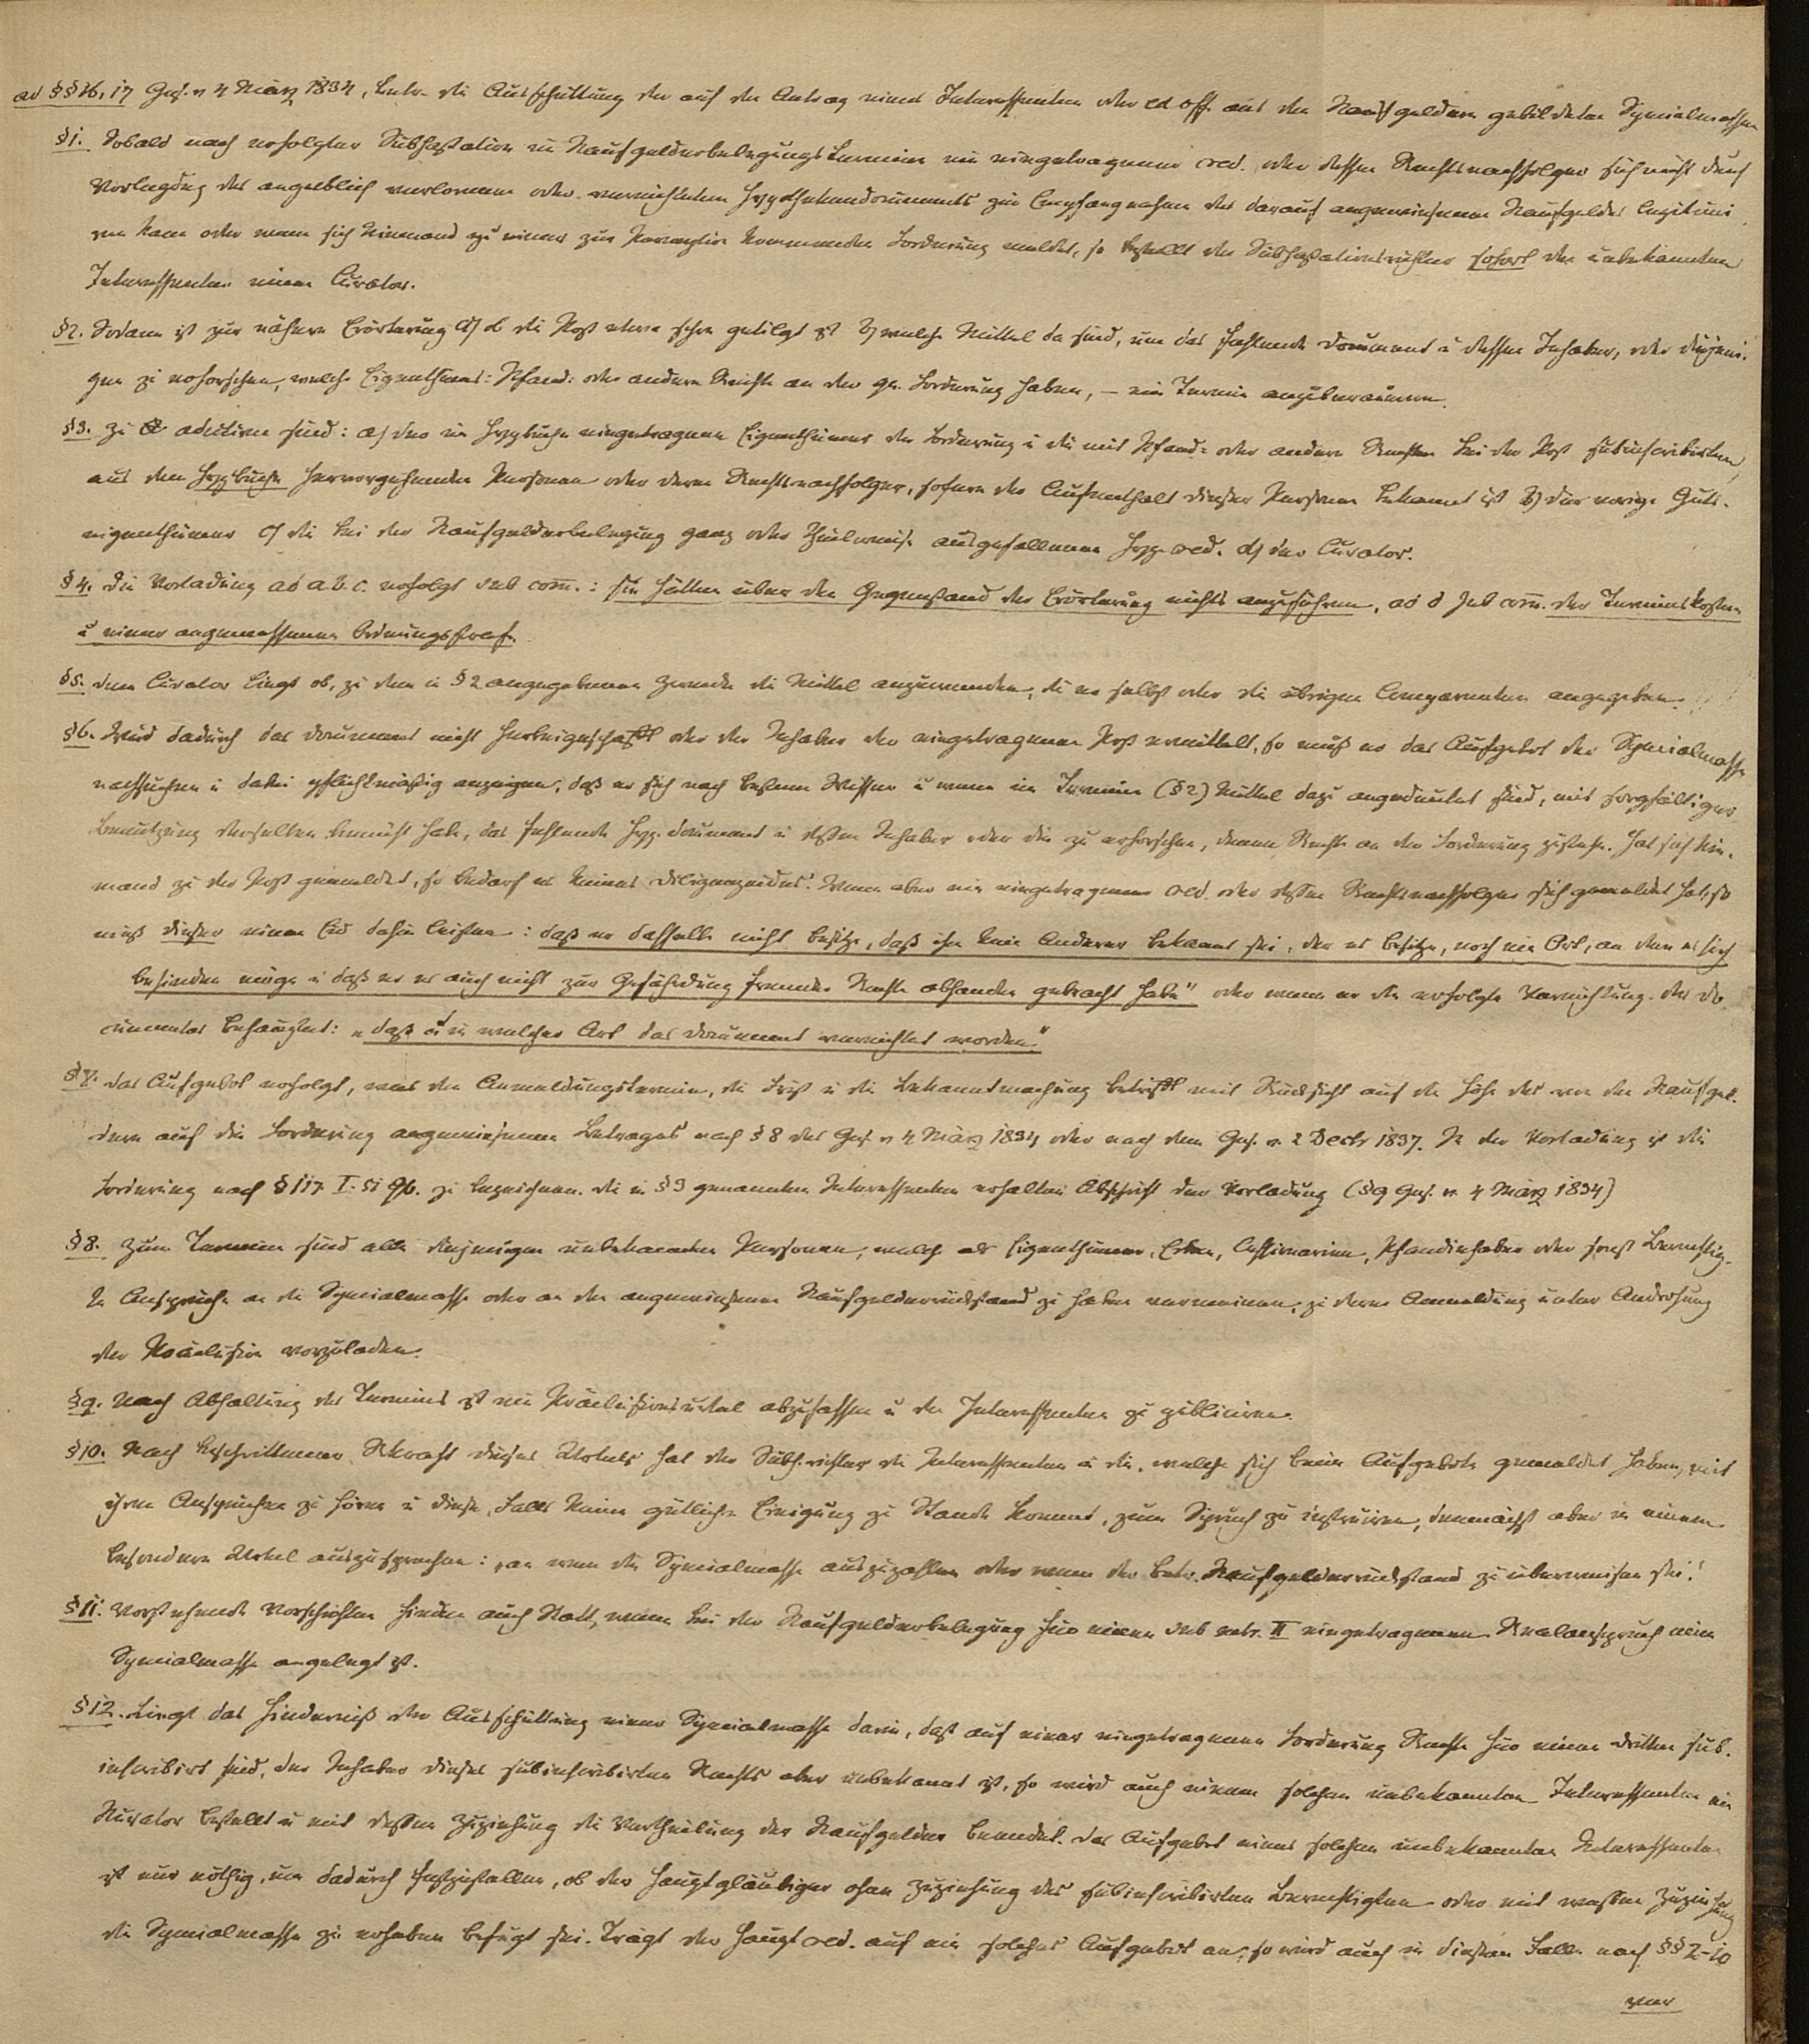 ad §§ 16, 17 Ges. v 4 März 1834, betr. die Ausschüttung der auf den Antrag eines Interessenten oder ex off. aus den Kaufgeldern gebildeten Specialmassen
§1. Sobald nach erfolgter Subhastation im Kaufgelderbelegungstermine ein eingetragener cred. oder dessen Rechtsnachfolger sich nicht durch
Vorlegung des angeblich verlornen oder vernichteten Hypothekendocuments zur Empfangnahme des darauf angewiesenen Kaufgeldes legitimi
ren kann oder wenn sich Niemand zu einer zur Perception kommenden Forderung meldet, so bestellt der Subhastationsrichter sofort den unbekannten
Interessenten einen Curator.
§2. Sodann ist zur nähern Erörterung a) ob die Post etwa schon getilgt ist b) welche Mittel da sind, um das fehlende Document u dessen Inhaber, oder diejeni-
gen zu erforschen, welche Eigenthums: Pfand: oder andere Rechte an der qu. Forderung haben, – ein Termin anzuberaumen.
§3. Zu adcitiren sind: a) der im Hypbuche eingetragene Eigenthümer der Forderung u die mit Pfand: oder andern Rechten bei der Post subinscribirten,
aus dem Hypbuche hervorgehenden Personen oder deren Rechtsnachfolger, sofern der Aufenthalt dieser Personen bekannt ist b) der vorige Guts-
eigenthümer c) die bei der Kaufgelderbelegung ganz oder theilweise ausgefallenen Hyp. cred. d) der Curator.
§4. Die Vorladung ad a. b. c. erfolgt sub com̅.: sie hätten über den Gegenstand der Erörterung nichts anzuführen, ad d sub com̅. der Terminskosten
u einer angemessenen Ordnungsstrafe.
§5. Dem Curator liegt ob, zu dem in §2 angegebenen Zwecke die Mittel anzuwenden, die er selbst oder die übrigen Comparenten angegeben.
§6. Wird dadurch das Document nicht herbeigeschafft oder der Inhaber der eingetragenen Post ermittelt, so muß er das Aufgebot der Specialmasse
nachsuchen u dabei pflichtmäßig anzeigen, daß er sich nach bestem Wissen u wenn im Termine (§2) Mittel dazu angedeutet sind, mit sorgfältiger
Benutzung derselben bemüht habe, das fehlende Hyp. document u dessen Inhaber oder die zu erforschen, denen Rechte an der Forderung zustehe. Hat sich Nie-
mand zu der Post gemeldet, so bedarf es keines Diligenzeides. Wenn aber ein eingetragener cred. oder dessen Rechtsnachfolger sich gemeldet hat, so
muß dieser einen Eid dahin leisten: daß er dasselbe nicht besitze, daß ihm kein Anderer bekannt sei, der es besitze, noch ein Ort, an dem es sich
befinden möge u daß er es auch nicht zur Gefährdung fremder Rechte abhanden gebracht habe" oder wenn er die erfolgte Vernichtung des Do
cumentes behauptet: „daß u in welcher Art das Document vernichtet worden."
§7. Das Aufgebot erfolgt, was den Anmeldungstermin, die Frist u die Bekanntmachung betrifft mit Rücksicht auf die Höhe des von den Kaufgel-
dern auf die Forderung angewiesenen Betrages nach § 8 des Ges. v 4 März 1834 oder nach dem Ges. v. 2 Decbr 1837. In der Vorladung ist die
Forderung nach § 117 I. 51 zu bezeichnen. Die in §3 genannten Interessenten erhalten Abschrift der Vorladung (§9 Ges. v. 4 März 1834)
§8. Zum Termine sind alle diejenigen unbekannten Personen, welche als Eigenthümer, Erben, Cessionarien, Pfandinhaber oder sonst Berechtig-
te Ansprüche an die Specialmasse oder an den angewiesenen Kaufgelderrückstand zu haben vermeinen, zu deren Anmeldung unter Androhung
der Präclusion vorzuladen.
§9. Nach Abhaltung des Termins ist ein Präclusionsurtel abzufassen u den Interessenten zu publiciren.
§10. Nach beschrittener Rkraft dieses Urtels hat der Subh. richter die Interessenten u die, welche sich beim Aufgebote gemeldet haben, mit
ihren Ansprüchen zu hören u diese, falls keine gütliche Einigung zu Stande kommt, zum Spruch zu instruiren, demnächst aber in einem
besondern Urtel auszusprechen: „an wen die Specialmasse auszuzahlen oder wem der betr. Kaufgelderrückstand zu überweisen sei."
§11. Vorstehende Vorschriften finden auch Statt, wenn bei der Kaufgelderbelegung für einen sub rubr. II eingetragenen Realanspruch eine
Specialmasse angelegt ist.
§12. Liegt das Hinderniß der Ausschüttung einer Specialmasse darin, daß auf einer eingetragenen Forderung Rechte für einen Dritten sub-
inscribirt sind, der Inhaber dieses subinscribirten Rechts aber unbekannt ist, so wird auch einem solchen unbekannten Interessenten ein
Kurator bestellt u mit dessen Zuziehung die Vertheilung der Kaufgelder beendet. Das Aufgebot eines solchen unbekannten Interessenten
ist nur nöthig, um dadurch festzustellen, ob der Hauptgläubiger ohne Zuziehung des subinscribirten Berechtigten oder mit wessen Zuziehung
die Specialmasse zu erheben befugt sei. Trägt der Haupt cred. auf ein solches Aufgebot an, so wird auch in diesem Falle nach §§ 2–10
ver